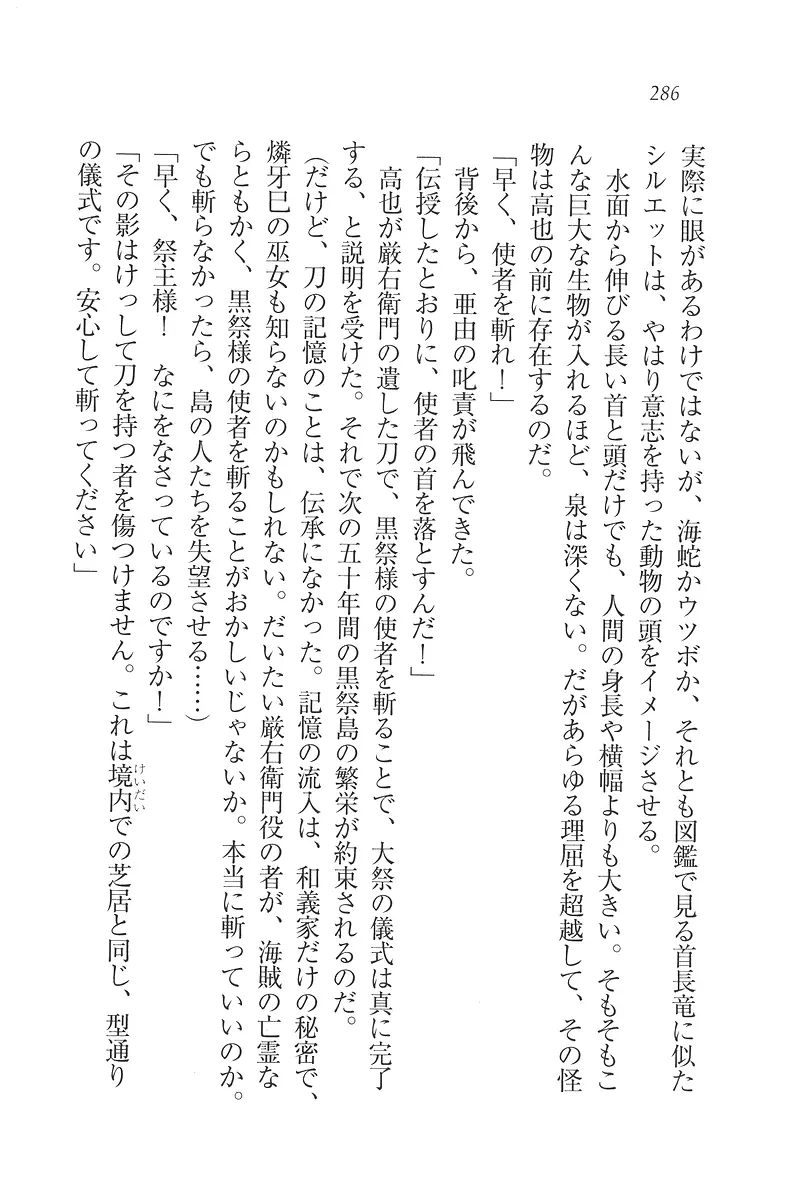 286
実際に眼があるわけではないが、海蛇かウツボか、それとも図鑑で見る首長竜に似た
シルエットは、やはり意志を持った動物の頭をイメージさせる。
水面から伸びる長い首と頭だけでも、人間の身長や横幅よりも大きい。そもそもこ
んな巨大な生物が入れるほど、泉は深くない。だがあらゆる理屈を超越して、その怪
物は高也の前に存在するのだ。
「早く、使者を斬れ！」
背後から、亜由の叱責が飛んできた。
「伝授したとおりに、使者の首を落とすんだ！」
高也が厳右衛門の遺した刀で、黒祭様の使者を斬ることで、大祭の儀式は真に完了
する、と説明を受けた。それで次の五十年間の黒祭島の繁栄が約束されるのだ。
（だけど、刀の記憶のことは、伝承になかった。記憶の流入は、和義家だけの秘密で、
燐牙巳の巫女も知らないのかもしれない。だいたい厳右衛門役の者が、海賊の亡霊な
らともかく、黒祭様の使者を斬ることがおかしいじゃないか。本当に斬っていいのか。
でも斬らなかったら、島の人たちを失望させる……）
「早く、祭主様！　なにをなさっているのですか！」
「その影はけっして刀を持つ者を傷つけません。これは境内での芝居と同じ、型通り
けいだい
の儀式です。安心して斬ってください」